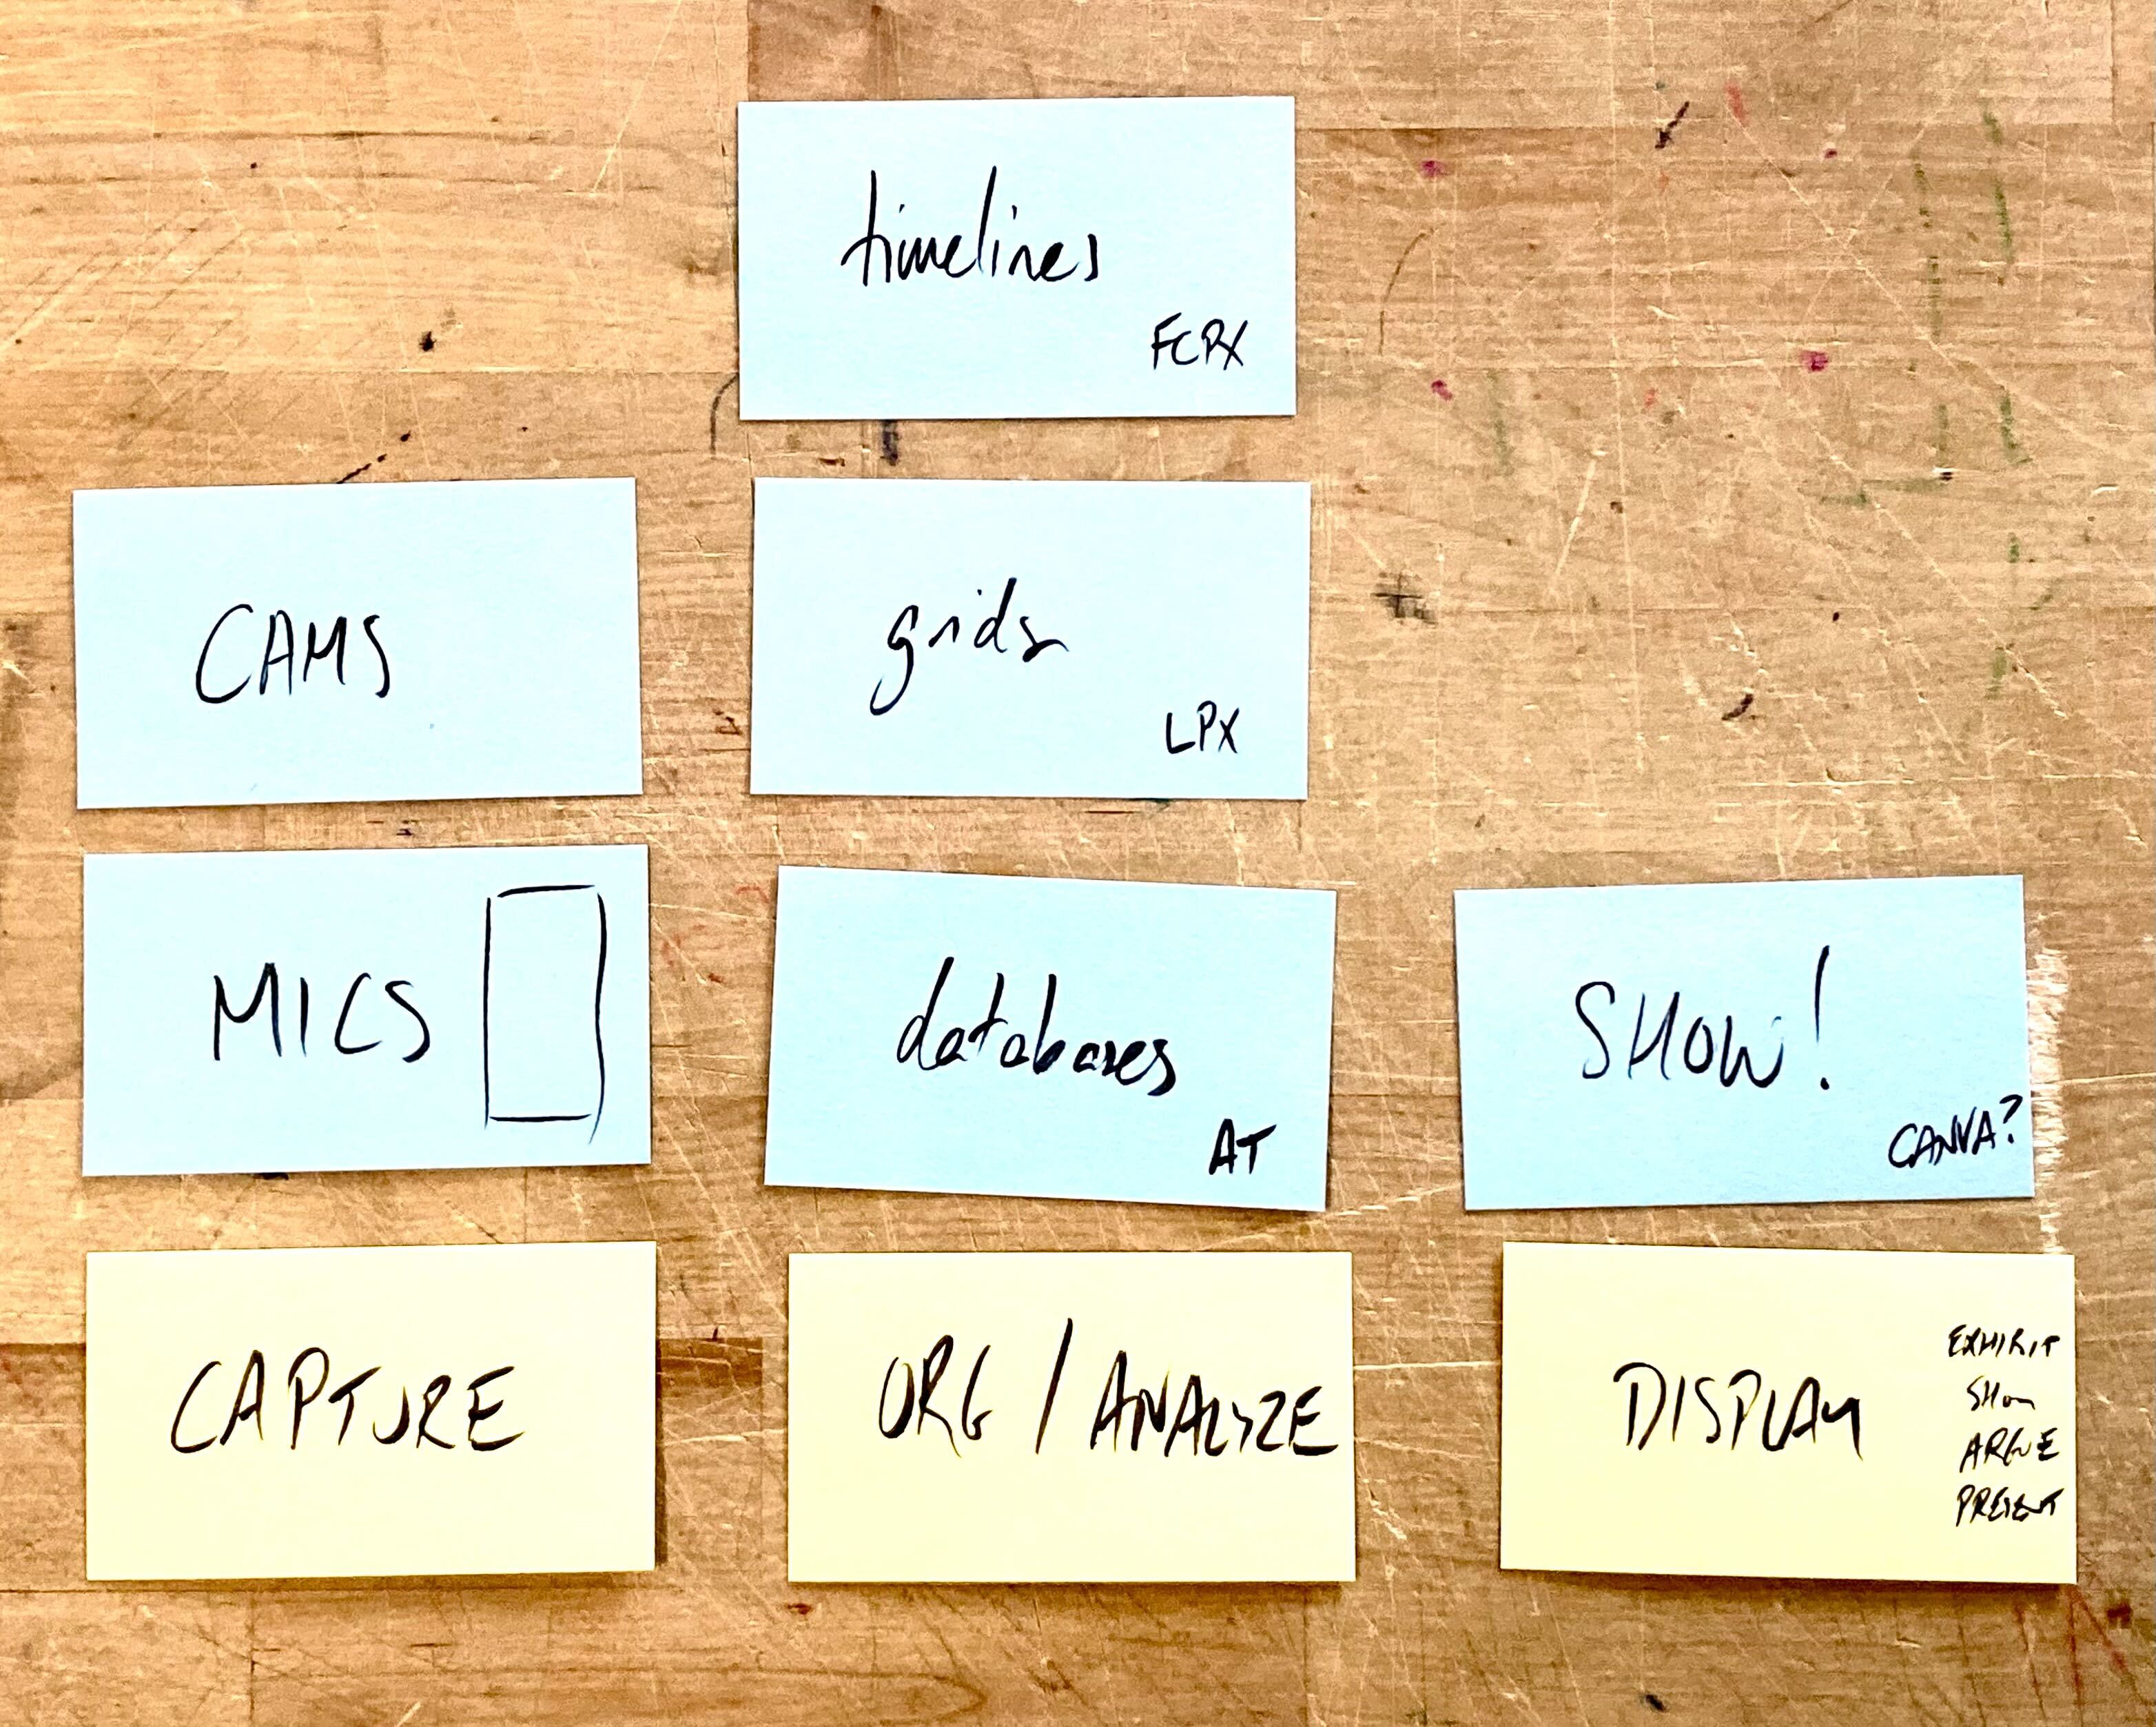 timelines
FCPX
CAMS
grids
LPX
MICS
databases
AT
SHOW!
CANVA?
CAPTURE
ORG / ANALYZE
DISPLAY
EXHIBIT
SHOW
ARGUE
PRESENT